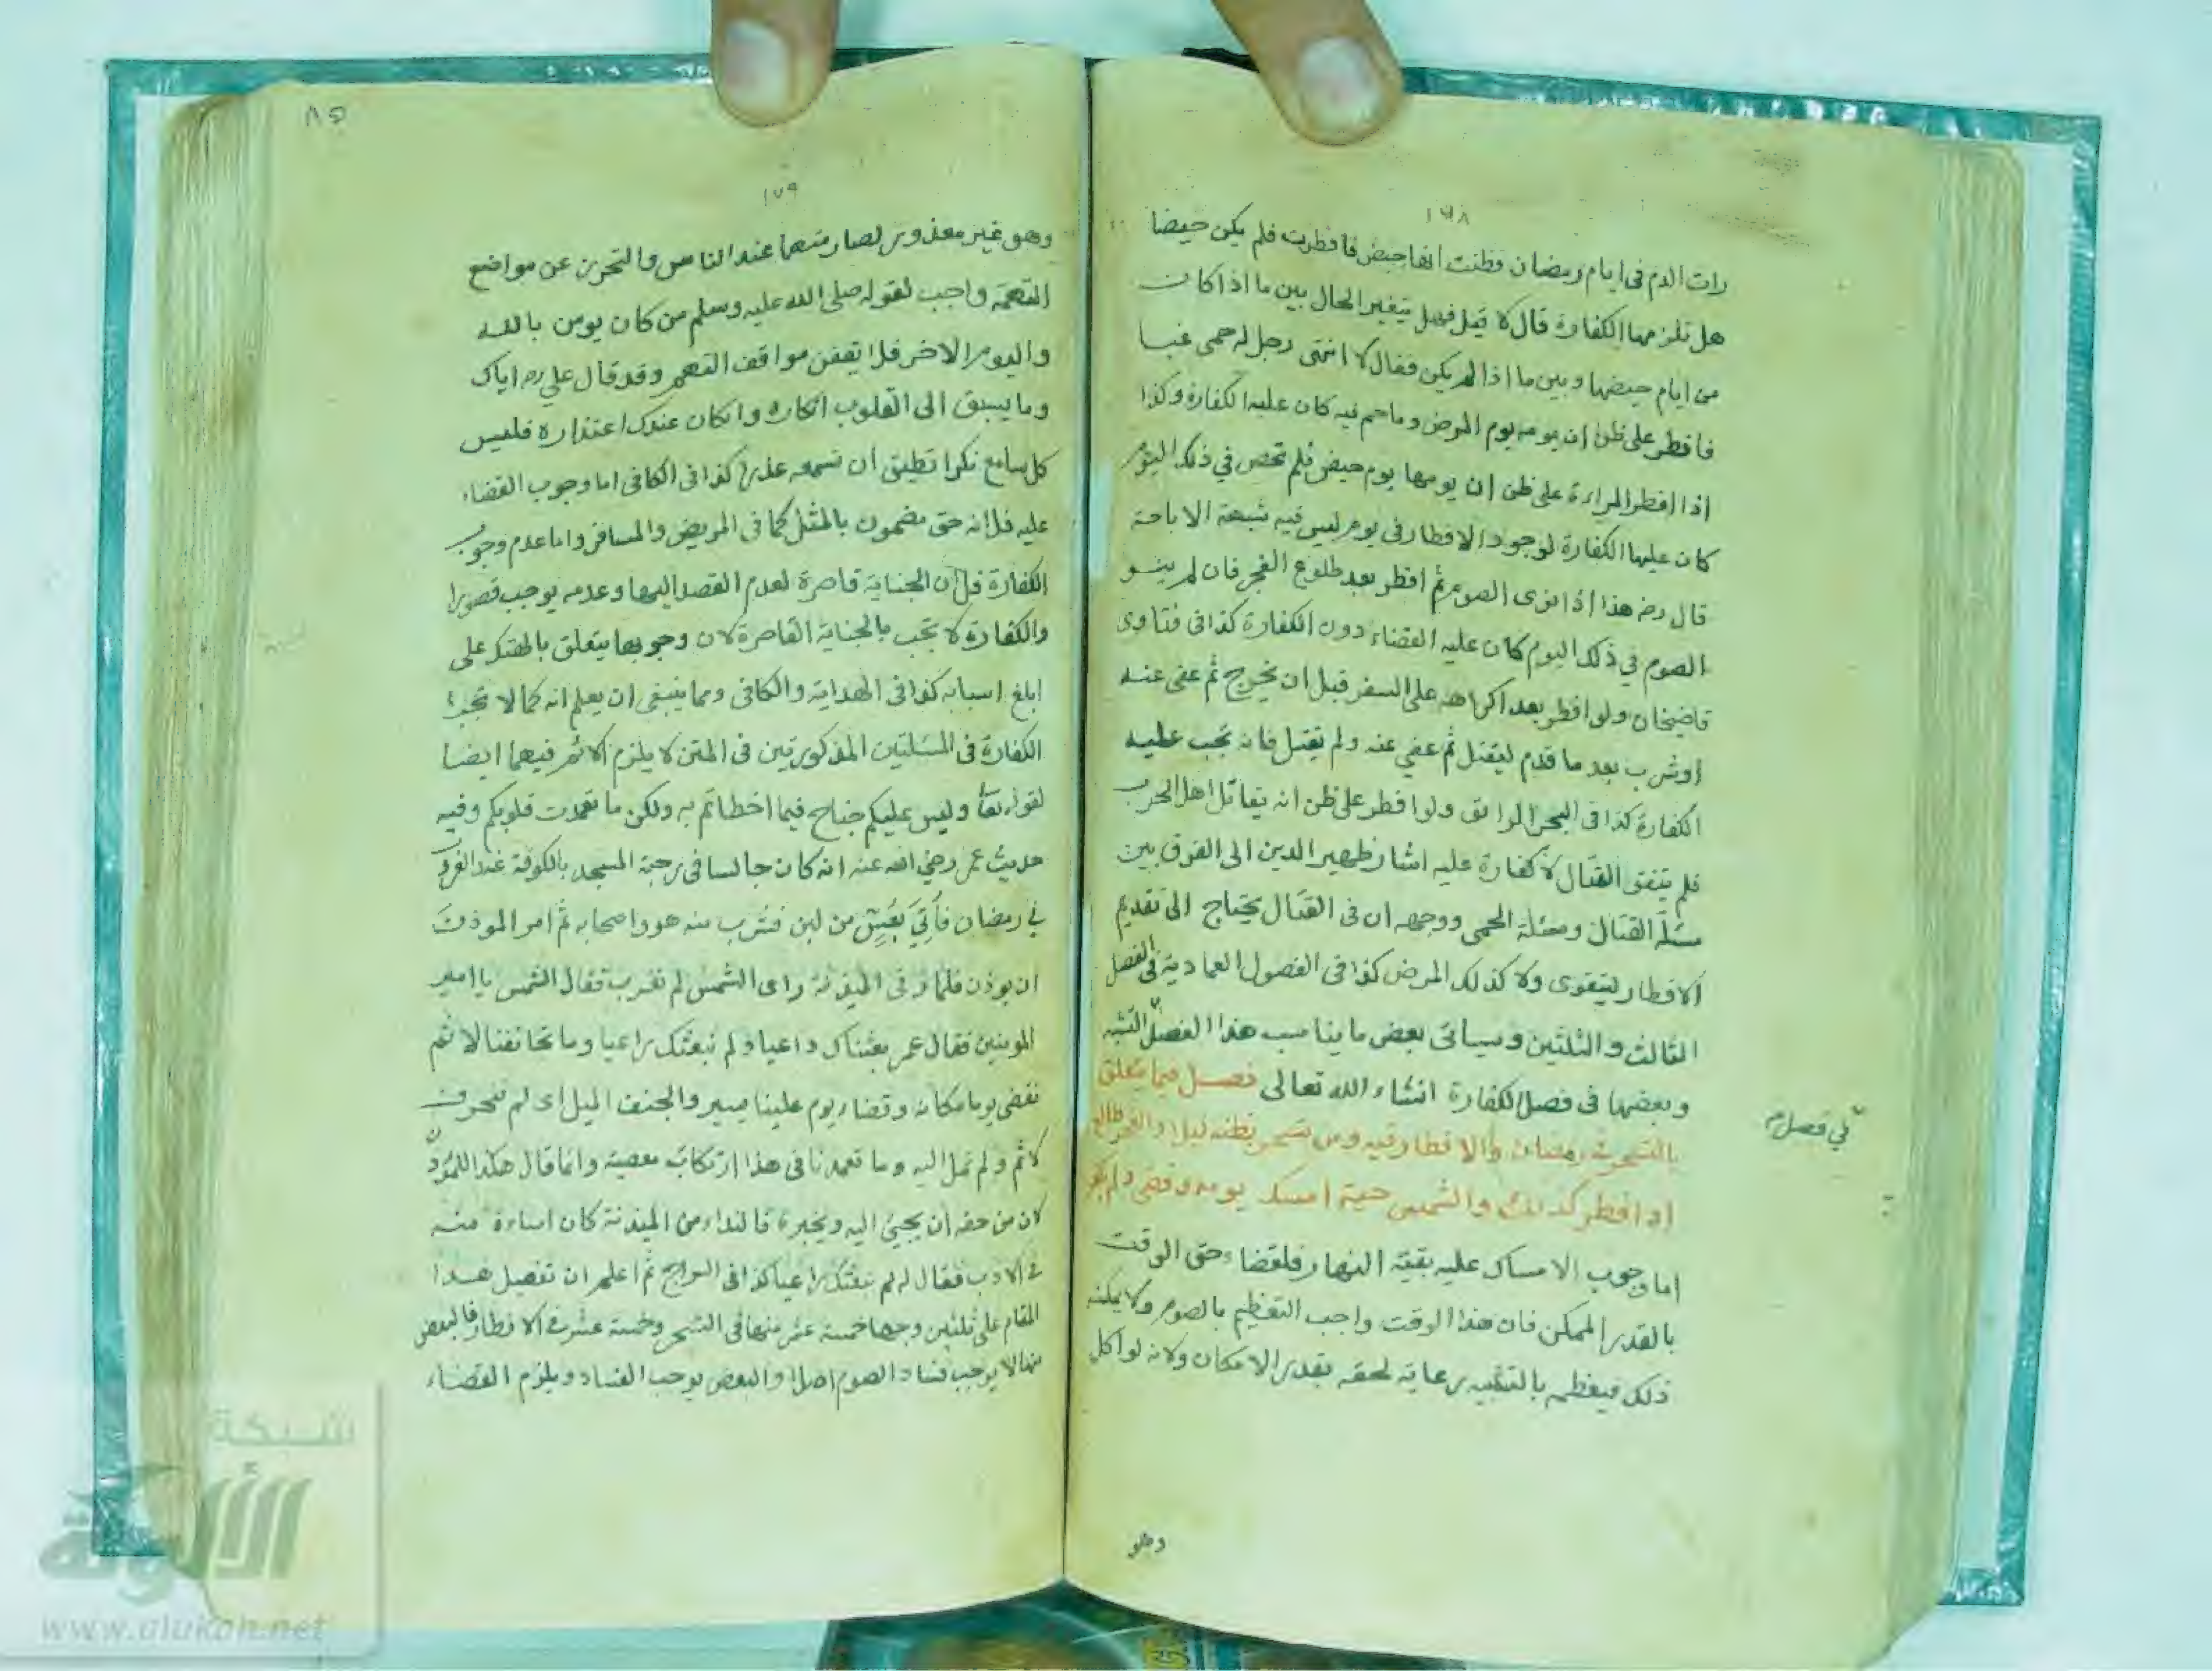 ١٦٨
رات الدم فى ايام رمضان فظنت انها حيض فافطرت فلم يكن حيضا
هل تلزمها الكفارة قال لا قيل فهل يتغير الحال بين ما اذا كان
من ايام حيضها وبين ما اذا لم يكن فقال لا انتهى رجل له حمى غبا
فافطر على ظن ان يومه يوم المرض وما حم فيه كان عليه الكفارة وكذا
اذا افطر المراءة على ظن ان يومها يوم حيض فلم تحض في ذلك اليوم
كان عليها الكفارة لوجود الافطار فى يوم ليس فيه شبهة الاباحة
قال رض هذا اذا نوى الصوم ثم افطر بعد طلوع الفجر فان لم ينو
الصوم في ذلك اليوم كان عليه القضاء دون الكفارة كذا فى فتاوى
قاضيخان ولو افطر بعد اكراهه على السفر قبل ان يخرج ثم عفى عنه
اوشرب بعد ما قدم ليقتل ثم عفي عنه ولم يقتل فانه تجب عليه
الكفارة كذا فى البحر الرائق ولو افطر على ظن انه يقاتل اهل الحرب
فلم يتفق القتال لا كفارة عليه اشار ظهير الدين الى الفرق بين
مسئلة القتال ومسئلة الحمى ووجهه ان فى القتال يحتاج الى تقديم
الافطار ليتقوى ولا كذلك المرض كذا فى الفصول العمادية فى الفصل
الثالث والثلثين وسياتى بعض ما يناسب هذا الفصل التشبه
وبعضها فى فصل الكفارة انشاء الله تعالى فصل فيما يتعلق
بالتسحر فى رمضان والافطار فيه ومن تسحر بظنه ليلا والفجر طالع
او افطر كذلك والشمس حية امسك يومه وقضى ولم يكفر
اما وجوب الامساك عليه بقية النهار فلقضاء حق الوقت
بالقدر الممكن فان هذا الوقت واجب التعظيم بالصوم ولا يمكنه
ذلك فيعظمه بالتشبه رعاية لحقه بقدر الامكان ولانه لو اكل
في فصل م
وهو
٨٥
١٦٩
وهو غير معذور لصار متهما عند الناس والتحرز عن مواضع
التهمة واجب لقوله صلى الله عليه وسلم من كان يومن بالله
واليوم الاخر فلا يقفن مواقف التهم وقد قال علي رض اياك
وما يسبق الى القلوب انكاره وانكان عندك اعتذاره فليس
كل سامع نكرا تطيق ان تسمعه عذرا كذا فى الكافى اما وجوب القضاء
عليه فلانه حق مضمون بالمثل كما فى المريض والمسافر واما عدم وجوب
الكفارة فلان الجناية قاصرة لعدم القصد اليها وعدمه يوجب قصورا
والكفارة لا تجب بالجناية القاصرة لان وجوبها يتعلق بالهتك على
ابلغ اسبابه كذا فى الهداية والكافى ومما ينبغى ان يعلم انه كما لا تجب
الكفارة فى المسئلتين المذكورتين فى المتن لا يلزم الاثم فيهما ايضا
لقوله تعا وليس عليكم جناح فيما اخطاتم به ولكن ما تعمدت قلوبكم وفيه
حديث عمر رضي الله عنه انه كان جالسا فى رحبة المسجد بالكوفة عند الغروب
في رمضان فأُتِيَ بعُسٍّ من لبن فشرب منه هو واصحابه ثم امر الموذن
ان يوذن فلما رقى الميذنة راى الشمس لم تغرب فقال الشمس يا امير
المومنين فقال عمر بعثناك داعيا ولم نبعثك راعيا وما تجانفنا لاثم
نقضى يوما مكانه وقضاء يوم علينا يسير والجنف الميل اى لم ننحرف
لاثم ولم نمل اليه وما تعمدنا فى هذا ارتكاب معصية وانما قال هكذا للموذن
لان من حقه ان يجيئ اليه ويخبره فالنداء من الميذنة كان اساءة منه
فى الادب فقال له لم نبعثك راعيا كذا فى السراج ثم اعلم ان تفصيل هذا
المقام على ثلثين وجها خمسة عشر منها فى التسحر وخمسة عشر فى الافطار فالبعض
منها لا يوجب فساد الصوم اصلا والبعض يوجب الفساد ويلزم القضاء
شبكة
الألوكة
www.alukah.net